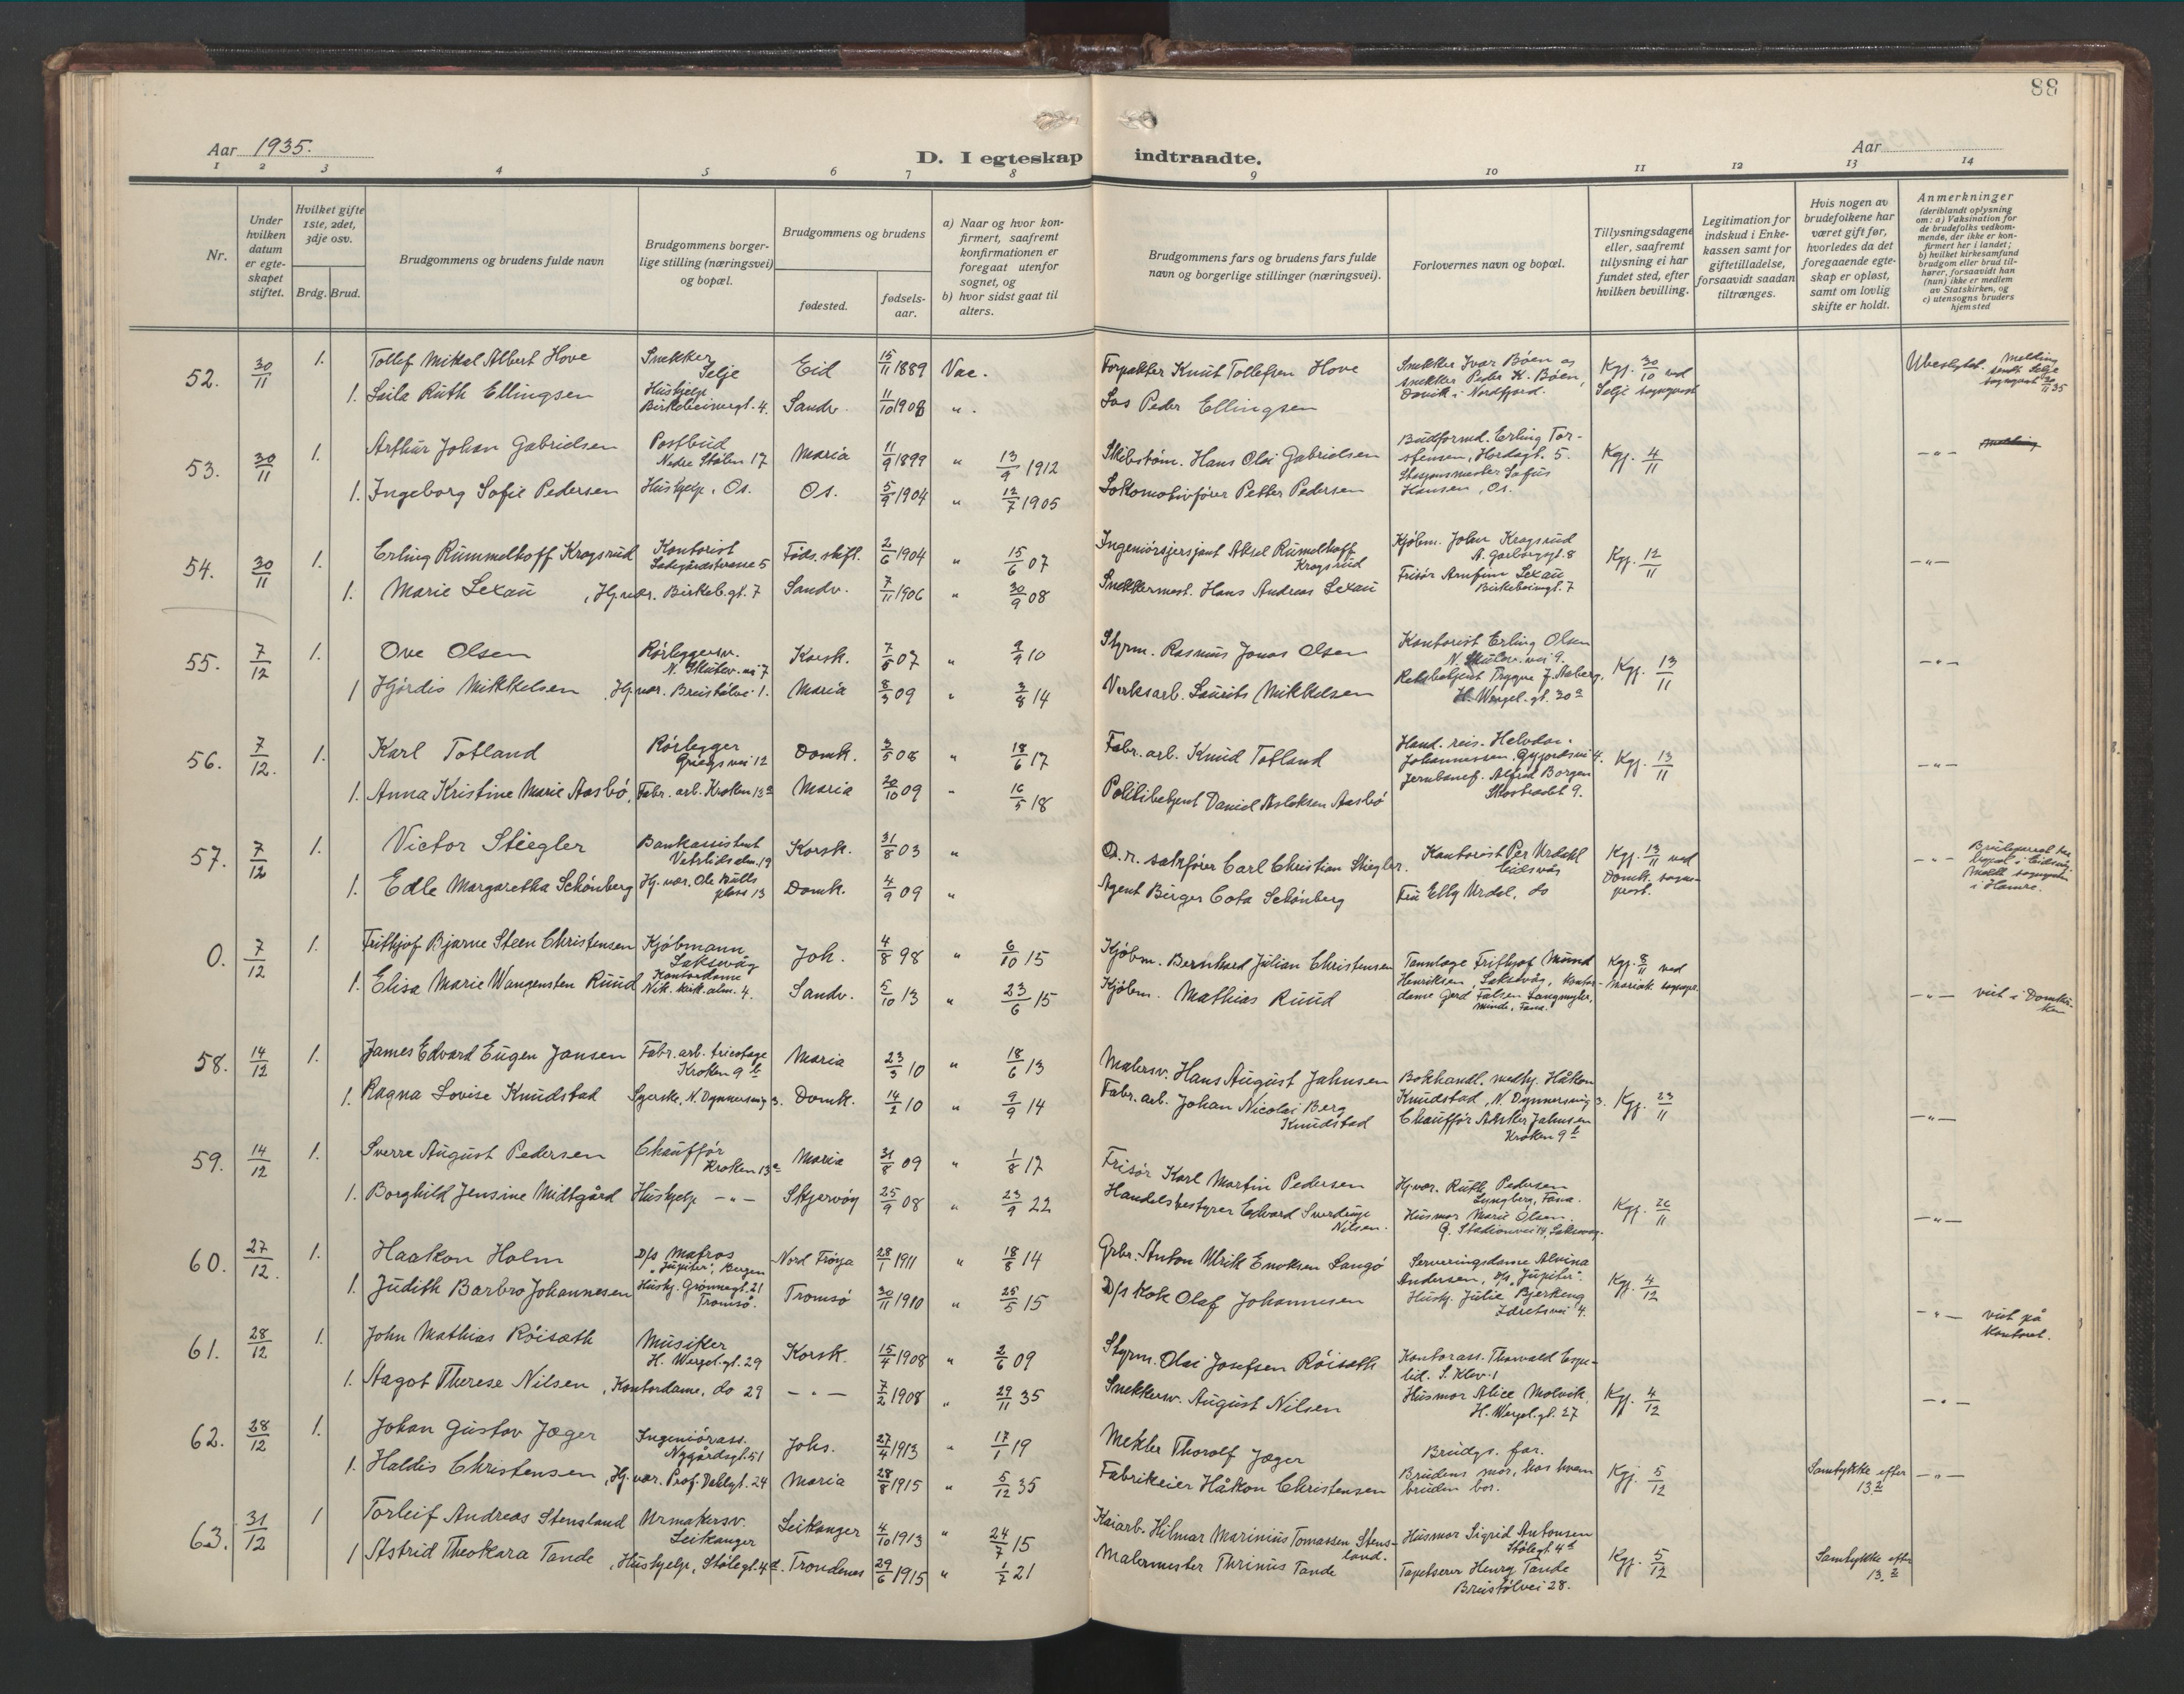 88
Aar 1935.
D. I egteskap indtraadte.
Aar
1 2 3 4 5 6 7 8 9 10 11 12 13 14
Nr.
Under hvilken datum er egteskapet stiftet.
Hvilket gifte 1ste, 2det, 3dje osv.
Brdg. Brud.
Brudgommens og brudens fulde navn
Brudgommens borgerlige stilling (næringsvei) og bopæl.
Brudgommens og brudens
fødested.
fødselsaar.
a) Naar og hvor konfirmert, saafremt konfirmationen er foregaat utenfor sognet, og
b) hvor sidst gaat til alters.
Brudgommens fars og brudens fars fulde navn og borgerlige stillinger (næringsvei).
Forlovernes navn og bopæl.
Tillysningsdagene eller, saafremt tillysning ei har fundet sted, efter hvilken bevilling.
Legitimation for indskud i Enkekassen samt for giftetilladelse, forsaavidt saadan tiltrænges.
Hvis nogen av brudefolkene har været gift før, hvorledes da det foregaaende egteskap er opløst, samt om lovlig skifte er holdt.
Anmerkninger
(deriblandt oplysning om: a) Vaksination for de brudefolks vedkommende, der ikke er konfirmert her i landet;
b) hvilket kirkesamfund brudgom eller brud tilhører, forsaavidt han (hun) ikke er medlem av Statskirken, og
c) utensogns bruders hjemsted
52. 30/11 1. Tollef Mikal Albert Hove Snekker Selje Eid 15/11 1889 Vac. Forpakter Knut Tollefsen Hove Snekker Ivar Bøen og snekker Peder K. Bøen, Davik i Nordfjord. Kgj. 30/10 ved Selje sogneprest
1. Laila Ruth Ellingsen Hushjelp Birkebeinergt. 4. Sandv. 11/10 1908 ". Los Peder Ellingsen
53. 30/11 1. Arthur Johan Gabrielsen Postbud Nedre Stølen 17 Maria 11/9 1899 " 13/9 1912 Skibstøm. Hans Olai Gabrielsen Budformd. Erling Torstensen, Hordagt. 5. Kgj. 4/11 -"-
1. Ingeborg Sofie Pedersen Hushjelp, Os. Os. 5/9 1904 " 12/7 1905 Lokomotivfører Petter Pedersen Stasjonsmester Sofus Hansen, Os.
54. 30/11 1. Erling Rummelhoff Krogsrud Kontorist Ladegårdstrasse 5 Føds. stift. 2/6 1904 " 15/6 07 Ingeniørsersjant Aksel Rumelhoff Krogsrud Kjøbm. John Krogsrud A. Garborgsgt. 8 Kgj. 12/11 -"-
1. Marie Lexau, Hj. vær. Birkeb.gt. 7 Sandv. 7/11 1906 " 30/9 08 Snekkermest. Hans Andreas Lexau Frisør Arnfinn Lexau Birkebeinergt. 7
55. 7/12 1. Ove Olsen Rørleggersv. N. Skutev. vei 7 Korsk. 7/8 07 " 9/9 10 Styrm. Rasmus Jonas Olsen Kontorist Erling Olsen N. Skutev. vei 9. Kgj. 13/11 -"-
1 Hjørdis Mikkelsen, Hj. vær. Breistølsv. 1. Maria 8/3 09 " 3/8 14 Verksarb. Laurits Mikkelsen Trygve J. Aaberg, H. Wergel. gt. 30a
56. 7/12. 1. Karl Totland Rørlegger Griegs vei 12 Domk. 3/5 08 " 18/6 17 Fabr. arb. Knud Totland Hand. reis. Johannessen, 4. Kgj. 13/11 -"-
1. Anna Kristine Marie Aasbø, Fabr. arb. Kroken 13a Maria 20/10 09 " 16/5 18 Politibetjent Daniel Aslaksen Aasbø Alfred Borgen 9.
57. 7/12 1. Victor Stiegler Bankassistent Vetrlidsalm. 19 Korsk. 31/8 03 " O.r. sakfører Carl Christian Stiegler. Kontorist Per Urdahl Eidsvåg Kgj. 13/11 ved Domk. sogneprest. -"-
1. Edle Margaretha Schönberg Hj. vær. Ole Bulls plass 13 Domk. 4/9 09 " Agent Birger Cota Schönberg Fru Elly Urdal, do
0. 7/12 1. Frithjof Bjarne Steen Christensen Kjøbmann Laksevåg Joh. 4/8 98 " 6/10 15 Kjøbm. Bernhard Julian Christensen Tannlæge Frithjof Mund Henriksen, Laksevåg, Kgj. 8/11 ved Mariak. sognepr.
1. Elisa Marie Wangensten Ruud Kontordame Nik. kirk. alm. 4. Sandv. 5/10 13 " 23/6 15 Kjøbm. Mathias Ruud kontordame Gerd Falsen Langmyhr, minde, Fana. -"- viet i Domkirken
58. 14/12 1. James Edvard Eugen Jansen Fabr. arb. tricotage Kroken 9b Maria 23/3 10 " 18/6 13 Malersv. Hans August Jahnsen Bokhandl. medhj. Håkon Knudstad, N. Dynnersvig 3. Kgj. 23/11
1. Ragna Lovise Knudstad Syerske, N. Dynnersvig 3. Domk. 14/2 10 " 9/9 14 Fabr. arb. Johan Nicolai Berg Knudstad Chauffør Jahnsen Kroken 9b -"-
59. 14/12 1. Sverre August Pedersen Chauffør Kroken 13a Maria 31/8 09 " 1/8 17 Frisør Karl Martin Pedersen Hj. vær. Ruth Pedersen Lyngberg, Fana. Kgj. 26/11
1. Borghild Jensine Midtgård Hushjelp -"- Skjervøy 25/9 08 " 23/9 22 Handelsbestyrer Edvard Sverdrup Nilsen. Husmor Marie Olsen, G. Stadionvei 14, Laksevåg. -"-
60. 27/12. 1. Haakon Holm D/s Matros "Jupiter", Bergen Nord Frøya 28/1 1911 " 18/8 14 Grbr. Anton Ulrik Enoksen Langø Serveringsdame Alvina Andersen, D/s "Jupiter". Kgj. 4/12
1. Judith Barbro Johannesen Hushj. Grønnegt. 21 Tromsø. Tromsø 30/11 1910 " 25/5 15 D/s Kok Olaf Johannesen Hushj. Julie Bjerkeng Idretsvei 4. -"- viet på kontoret.
61. 28/12 1. John Mathias Røisæth Musiker H. Wergel. gt. 29 Korsk. 15/4 1908 " 2/6 09 Styrm. Olai Josefsen Røisæth Kontorass. Thorvald Espelid. S. Klev. 1
1. Aagot Therese Nilsen, Kontordame, do 29 -"- 7/2 1908 " 29/11 35 Snekkersv. August Nilsen Husmor Alice Molvik, H. Wergel. gt. 27 Kgj. 4/12 -"-
62. 28/12 1. Johan Gustav Jæger Ingeniørass. Nygårdsgt. 51 Johs. 27/4 1913 " 17/1 19 Mekler Thorolf Jæger Brudgs. far.
1. Haldis Christensen, Hj. vær. Prof. Dahlsgt. 24 Maria 28/8 1915 " 5/12 35 Fabrikeier Håkon Christensen Brudens mor, hos hvem bruden bor. Kgj. 5/12 Samtykke efter 13. -"-
63. 31/12 1 Torleif Andreas Stensland Urmakersv. Leikanger Leikanger 4/10 1913 " 24/7 15 Kaiarb. Hilmar Marinius Tomassen Stensland. Husmor Sigrid Antonsen Stølegt. 4b
1 Astrid Theokara Tande, Hushjelp, Stølegt. 4d. Trondenes 29/6 1915 " 1/7 21 Malermester Thrinus Tande Tapetserer Henry Tande Breistølvei 28. Kgj. 5/12 Samtykke efter 13.